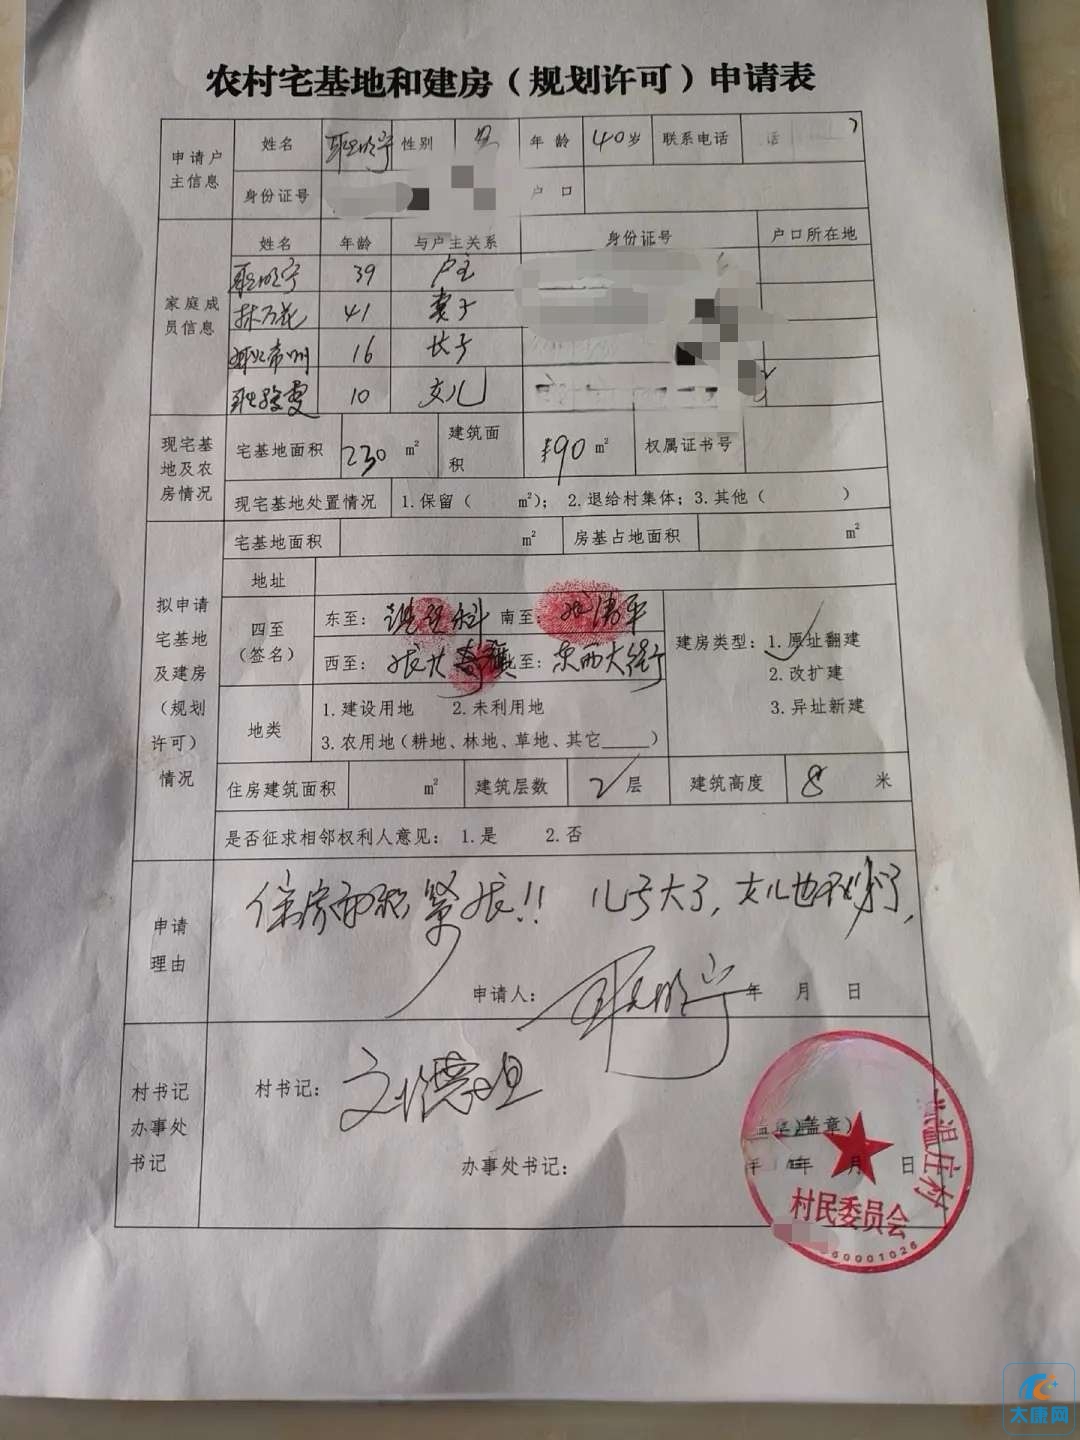 农村宅基地和建房（规划许可）申请表
申请户主信息 姓名 耿明宁 性别 男 年龄 40岁 联系电话
身份证号 户口
家庭成员信息 姓名 年龄 与户主关系 身份证号 户口所在地
耿明宁 39 户主
41 妻子
16 长子
10 女儿
现宅基地及农房情况 宅基地面积 230 m² 建筑面积 190 m² 权属证书号
现宅基地处置情况 1.保留（ m²）； 2.退给村集体；3.其他（ ）
拟申请宅基地及建房（规划许可）情况 宅基地面积 m² 房基占地面积 m²
地址
四至（签名） 东至： 南至：
西至： 至：东西大街
建房类型：1.原址翻建
2.改扩建
3.异址新建
地类 1.建设用地 2.未利用地
3.农用地（耕地、林地、草地、其它_____）
住房建筑面积 m² 建筑层数 2层 建筑高度 8 米
是否征求相邻权利人意见： 1.是 2.否
申请理由 住房面积紧张!! 儿子大了，女儿也不小了，
申请人：耿明宁 年 月 日
村书记办事处书记 村书记：
盖章）
办事处书记： 年 月 日
温庄村
村民委员会
00001026
太康网